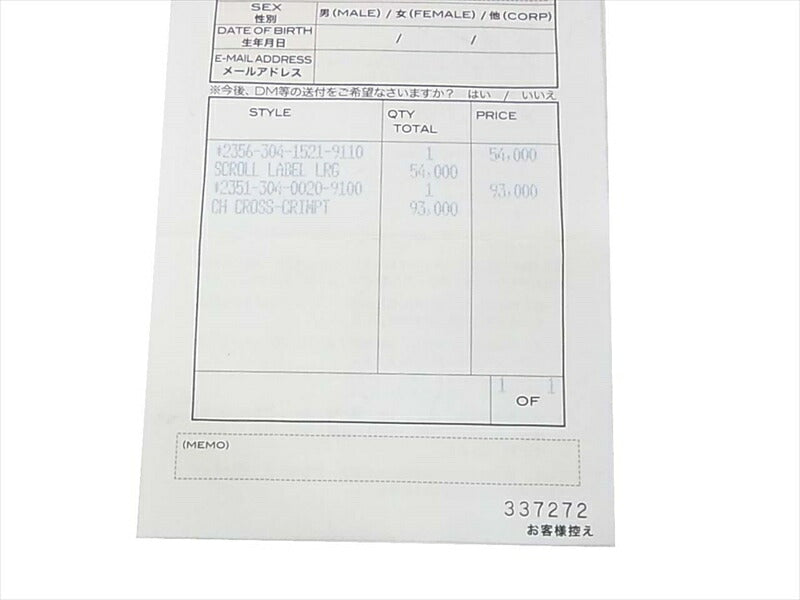 SEX
性別
男(MALE) / 女(FEMALE) / 他(CORP)
DATE OF BIRTH
生年月日
/ /
E-MAIL ADDRESS
メールアドレス
※今後、DM等の送付をご希望なさいますか? はい / いいえ
STYLE QTY TOTAL PRICE
*2356-304-1521-9110 1 54,000
SCROLL LABEL LRG 54,000
*2351-304-0020-9100 1 93,000
CH CROSS-CRIMPT 93,000
1 OF 1
(MEMO)
337272
お客様控え